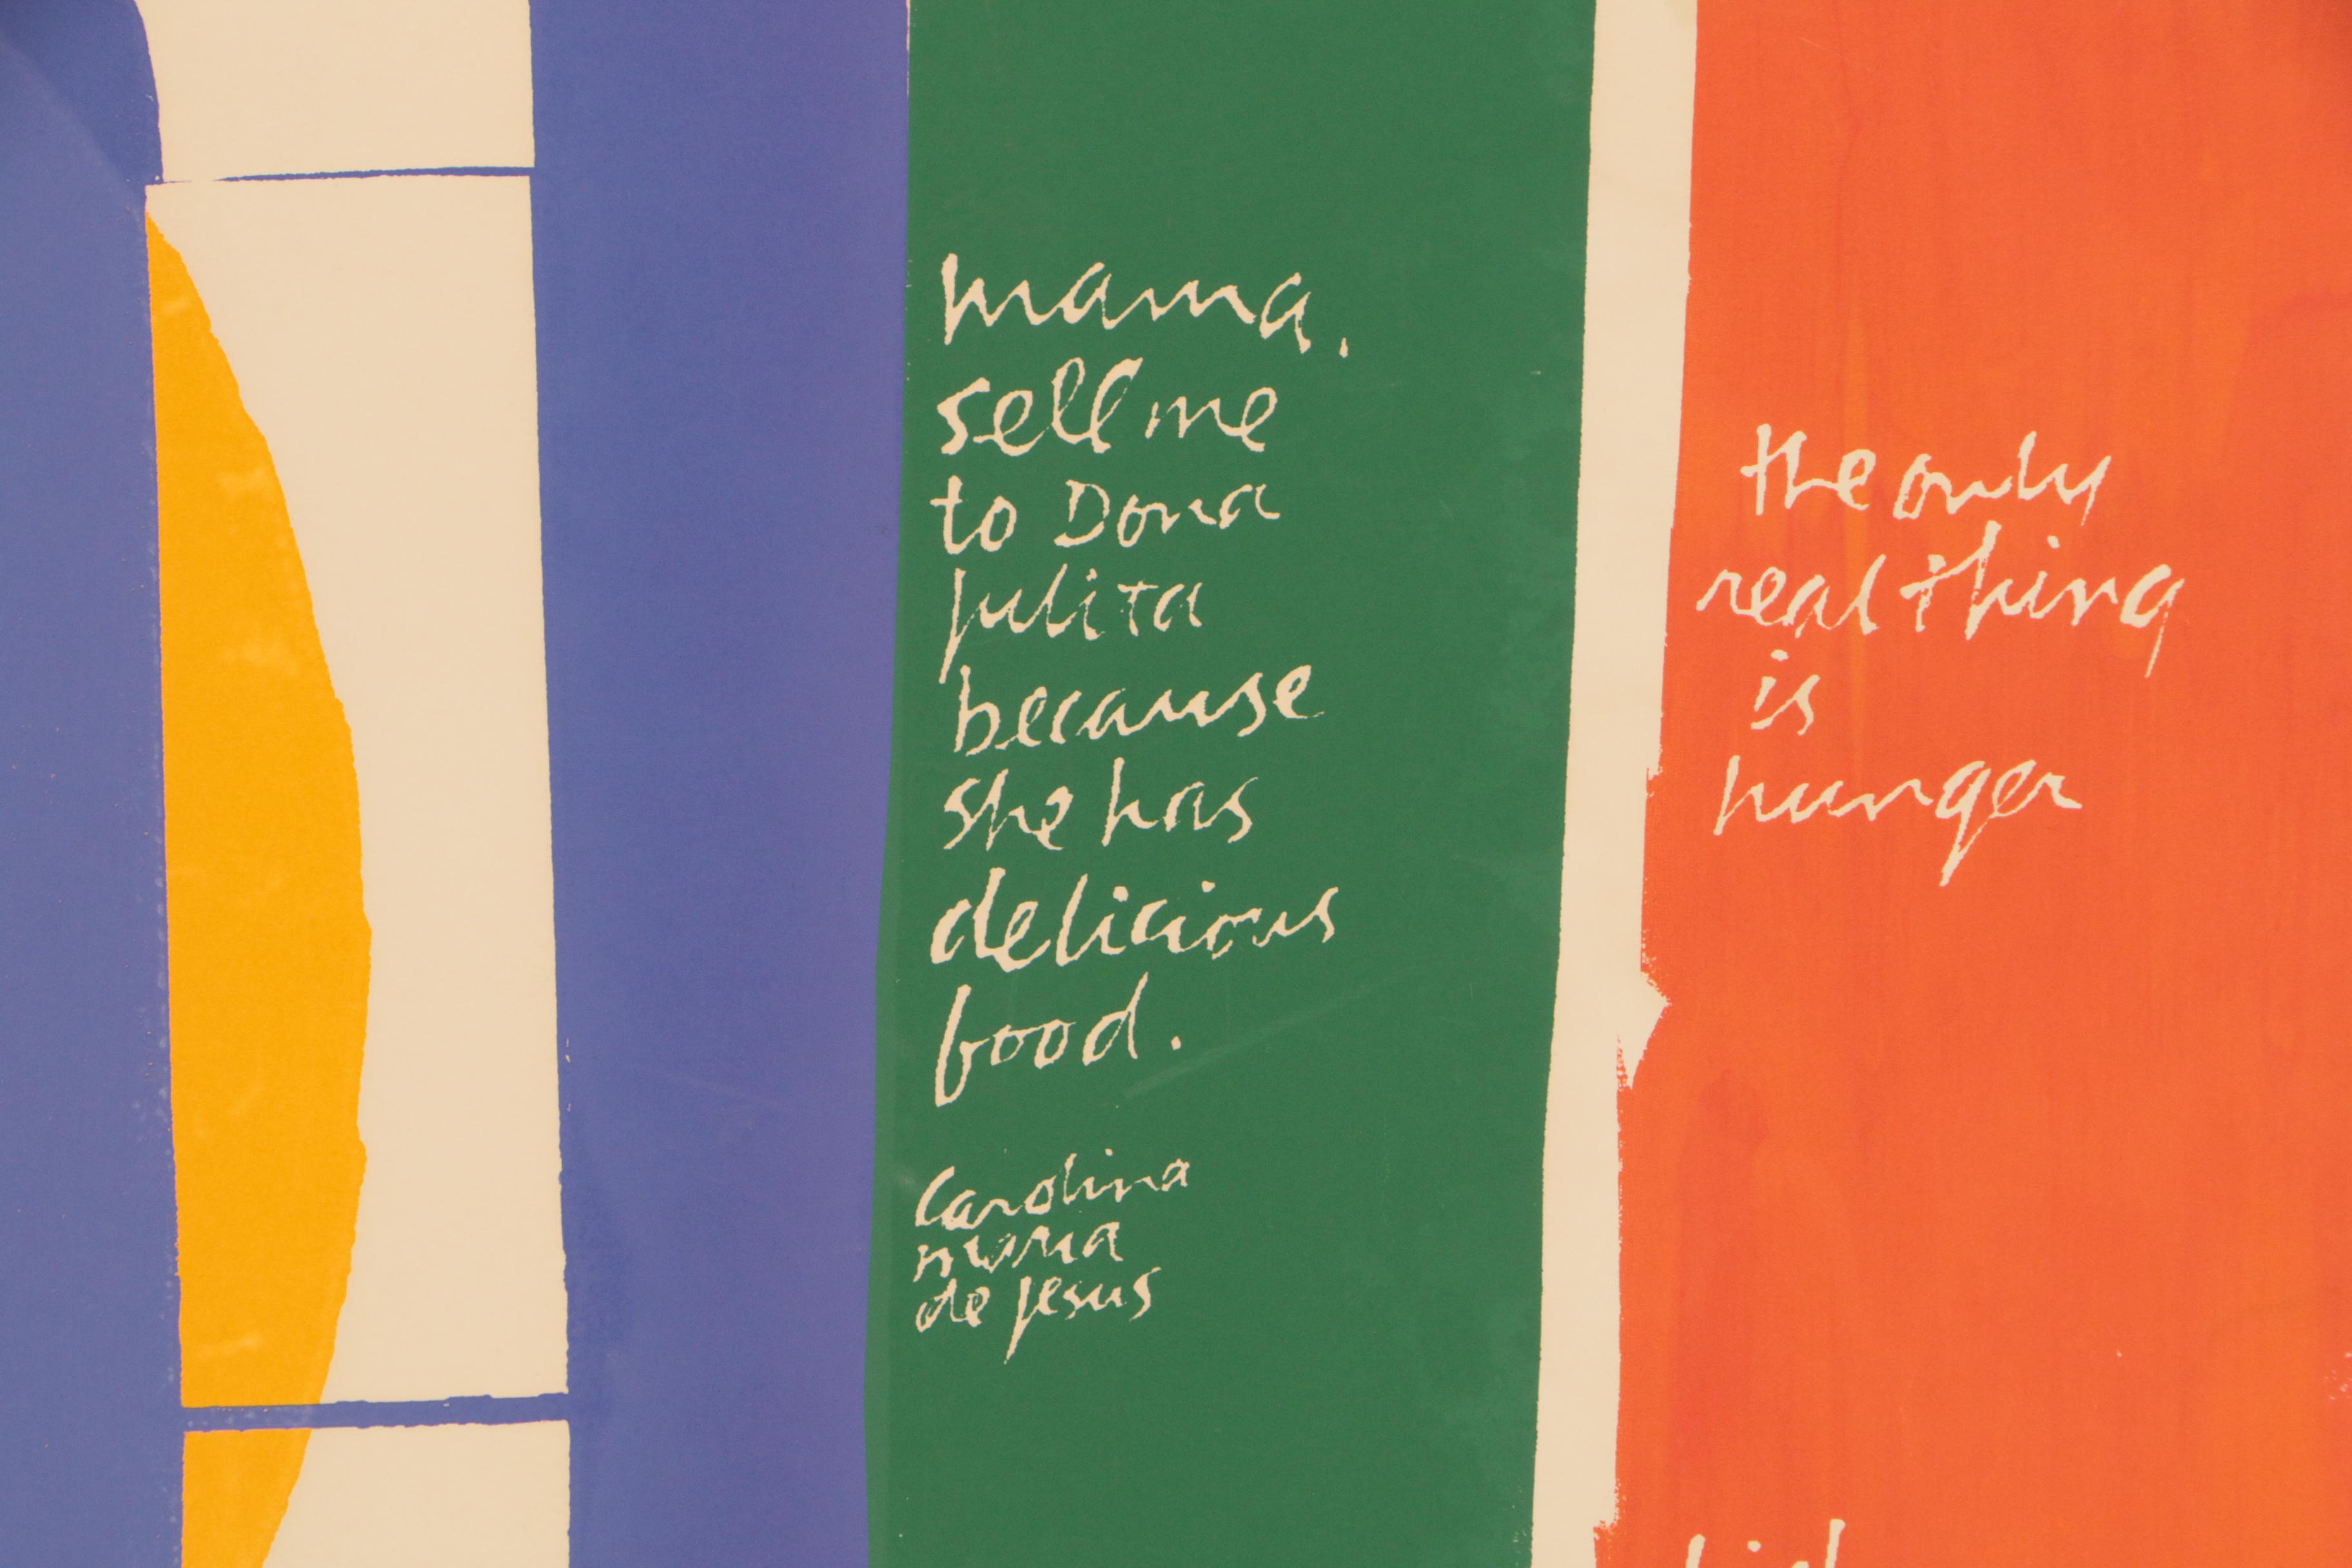 mama.
sell me
to Dona
Julita
because
she has
delicious
food.
Carolina
maria
de Jesus
the only
real thing
is
hunger